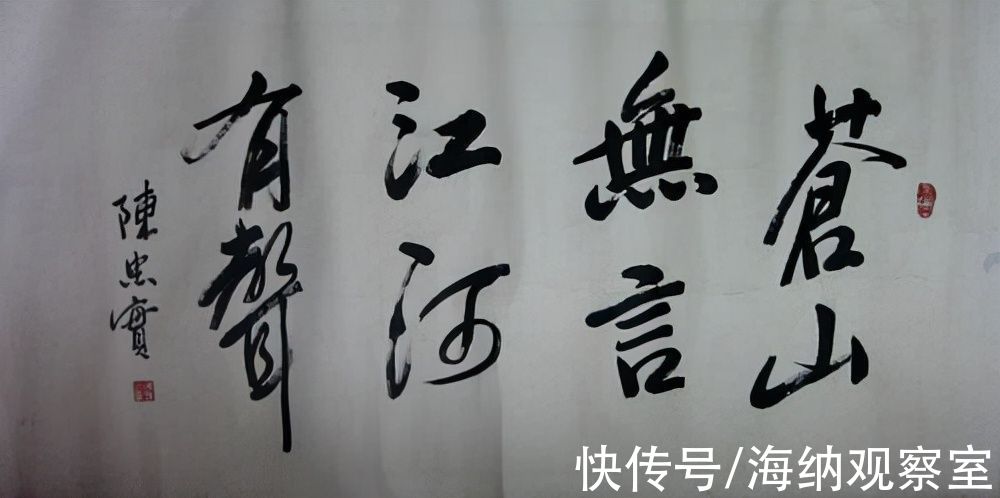 蒼山
無言
江河
有聲
陳忠實
快传号/海纳观察室